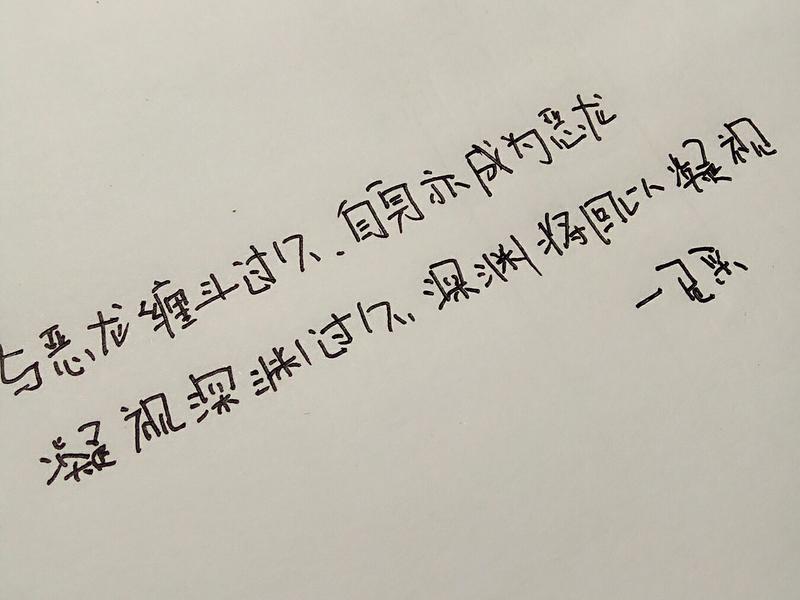 与恶龙缠斗过久,自身亦成为恶龙
凝视深渊过久,深渊将回以凝视
一尼采